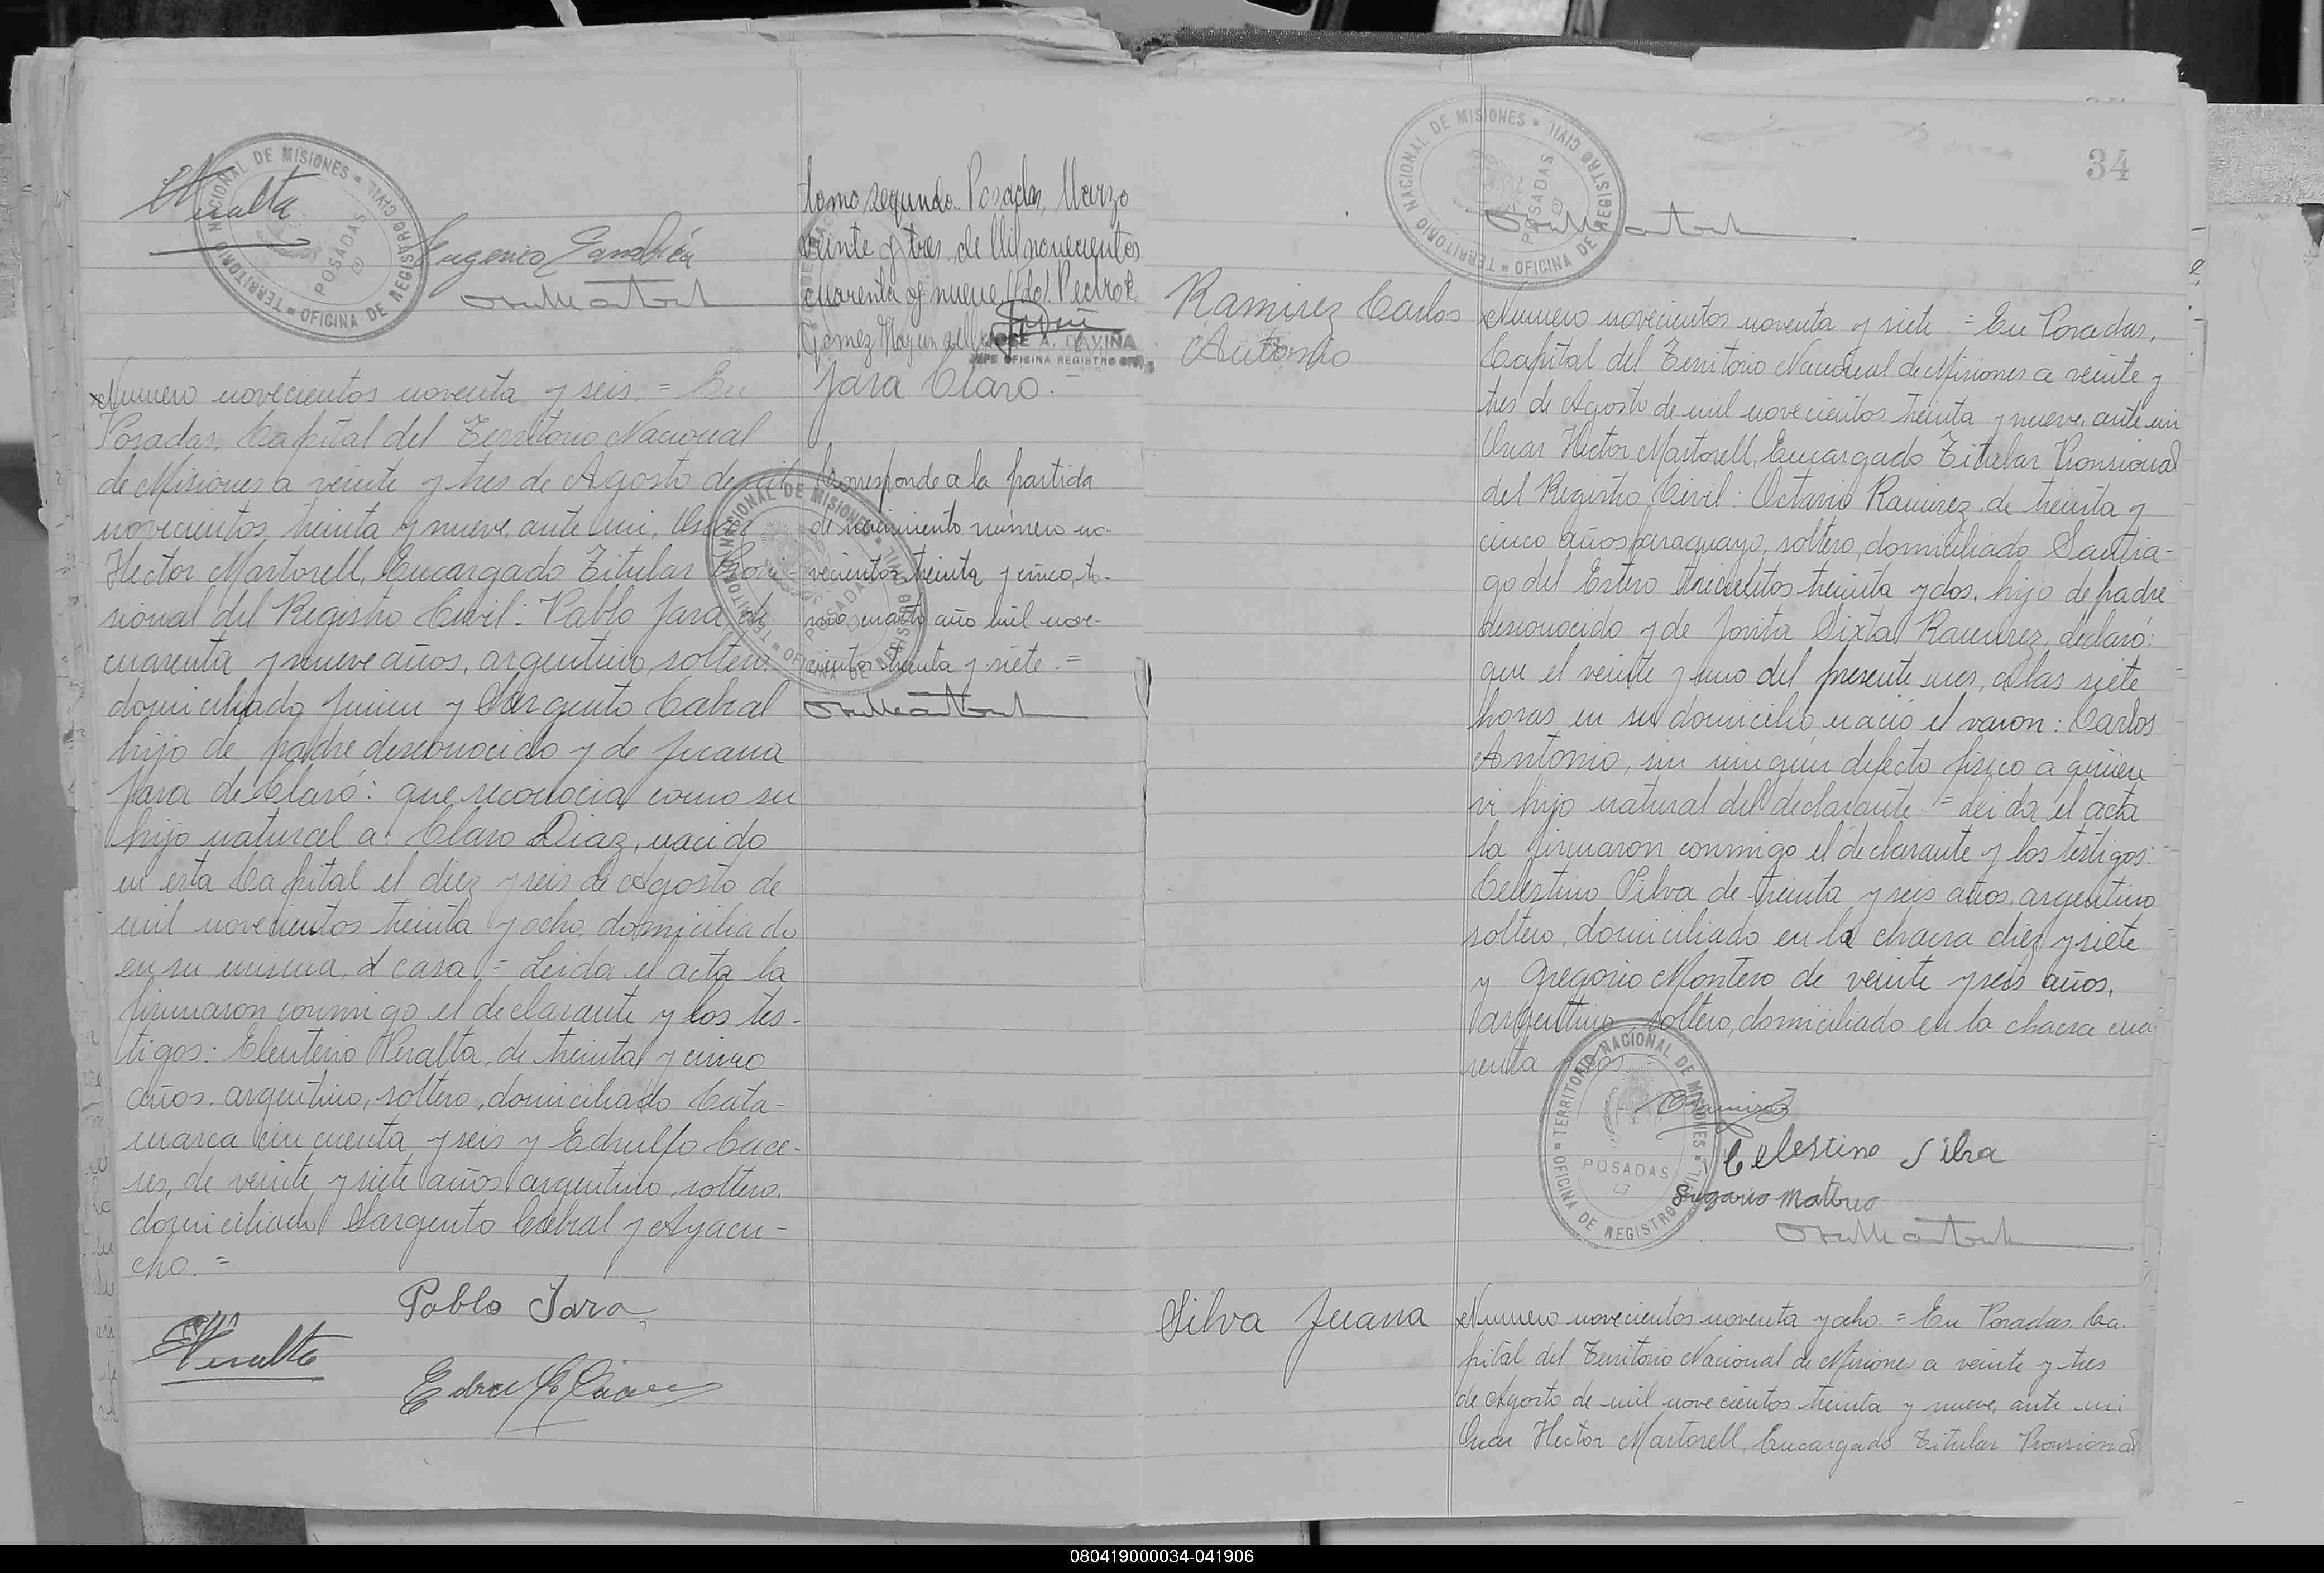 TERRITORIO NACIONAL DE MISIONES
OFICINA DE REGISTRO CIVIL
POSADAS
Peralta
Eugenio
tomo segundo. Posadas, Marzo
veinte y tres de Mil novecientos
cuarenta y nueve. (Fdo). Pedro
Gomez
JOSE A. DAVIÑA
JEFE OFICINA REGISTRO CIVIL
Numero novecientos noventa y seis. = En
Posadas, Capital del Territorio Nacional
de Misiones a veinte y tres de Agosto de mil
novecientos treinta y nueve, ante mi, Omar
Hector Martorell, Encargado Titular Provi-
sional del Registro Civil: Pablo Jara, de
cuarenta y nueve años, argentino, soltero,
domiciliado Junin y Sargento Cabral
hijo de padre desconocido y de Juana
Jara declaró: que reconocia como su
hijo natural a: Claro Diaz, nacido
en esta Capital el diez y seis de Agosto de
mil novecientos treinta y ocho, domiciliado
en su misma casa. = Leida el acta la
firmaron conmigo el declarante y los tes-
tigos: Eleuterio Peralta, de treinta y cinco
años, argentino, soltero, domiciliado Cata-
marca cincuenta y seis y Edrulfo Cace-
res, de veinte y siete años, argentino, soltero,
domiciliado Sargento Cabral y Ayacu-
cho. =
Pablo Jara
Peralta
Jara Claro. -
Corresponde a la partida
de nacimiento número no-
vecientos treinta y cinco, to-
mo cuarto año mil nove-
cientos treinta y siete. =
TERRITORIO NACIONAL DE MISIONES
OFICINA DE REGISTRO CIVIL
POSADAS
34
TERRITORIO NACIONAL DE MISIONES
OFICINA DE REGISTRO CIVIL
POSADAS
Ramirez Carlos
Antonio
Numero novecientos noventa y siete. = En Posadas,
Capital del Territorio Nacional de Misiones a veinte y
tres de Agosto de mil novecientos treinta y nueve, ante mi
Omar Hector Martorell, Encargado Titular Provisional
del Registro Civil: Octavio Ramirez, de treinta y
cinco años, paraguayo, soltero, domiciliado Santia-
go del Estero trecientos treinta y dos, hijo de padre
desconocido y de Jovita Sixta Ramirez, declaró:
que el veinte y uno del presente mes, a las siete
horas en su domicilio nació el varon: Carlos
Antonio, sin ningún defecto fisico a quien
vi hijo natural del declarante. = Leida el acta
la firmaron conmigo el declarante y los testigos:
Celestino Silva de treinta y seis años, argentino
soltero, domiciliado en la chacra diez y siete
y Gregorio Montero de veinte y seis años,
argentino, soltero, domiciliado en la chacra cua-
renta y dos
TERRITORIO NACIONAL DE MISIONES
OFICINA DE REGISTRO CIVIL
POSADAS
ORamirez
Celestino Silva
Silva Juana
Numero novecientos noventa y ocho. = En Posadas, Ca-
pital del Territorio Nacional de Misiones a veinte y tres
de Agosto de mil novecientos treinta y nueve, ante mi
Omar Hector Martorell, Encargado Titular Provisional
080419000034-041906